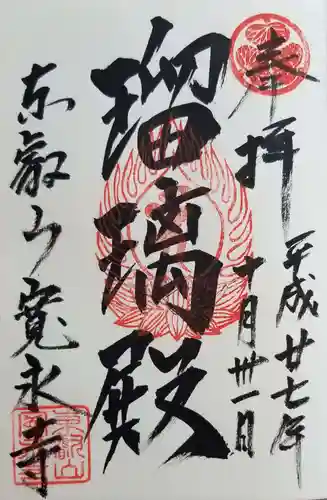 奉拝
平成廿七年
十月卅一日
瑠璃殿
東叡山寛永寺